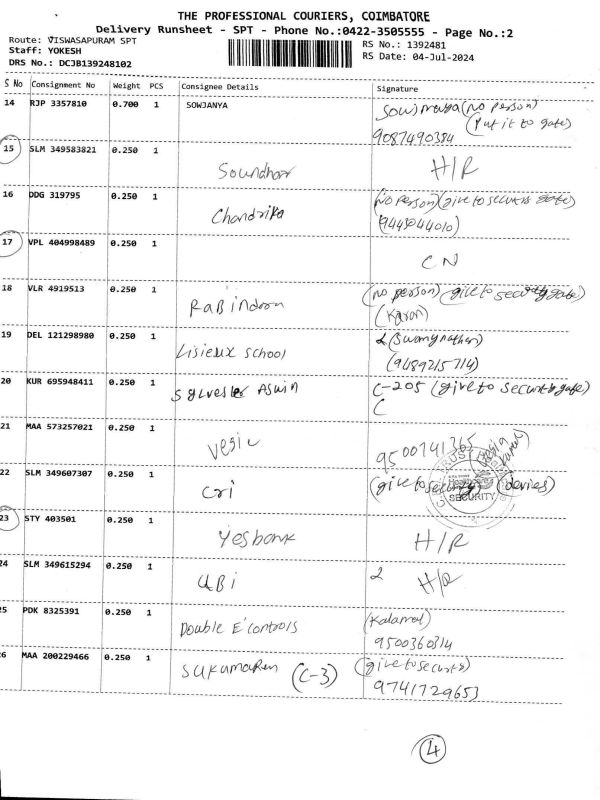 THE PROFESSIONAL COURIERS, COIMBATORE
Delivery Runsheet - SPT - Phone No.:0422-3505555 - Page No.:2
Route: VISWASAPURAM SPT
Staff: YOKESH
DRS No.: DCJB139248102
RS No.: 1392481
RS Date: 04-Jul-2024
S No Consignment No Weight PCS Consignee Details Signature
14 RJP 3357810 0.700 1 SOWJANYA (no person)
(Put it to gate)
9087490384
15 SLM 349583821 0.250 1 H/R
16 DDG 319795 0.250 1 Chandrika (no person) (give to security gate)
(9445044010)
17 VPL 404998489 0.250 1 CN
18 VLR 4919513 0.250 1 (no person) (give to security gate)
(Karan)
19 DEL 121298980 0.250 1 Lisieux School (Swamynathan)
(9489215714)
20 KUR 695948411 0.250 1 Sylvester Aswin C-205 (give to security gate)
(
21 MAA 573257021 0.250 1 9500741365
22 SLM 349607307 0.250 1 Cri (give to security) (denies)
TRUST
SECURITY
23 STY 403501 0.250 1 Yesbank H/R
24 SLM 349615294 0.250 1 UBi 2 H/R
25 PDK 8325391 0.250 1 Double E'Controls
9500360314
26 MAA 200229466 0.250 1 Sukumaran (C-3) (give to security)
9741729653
4